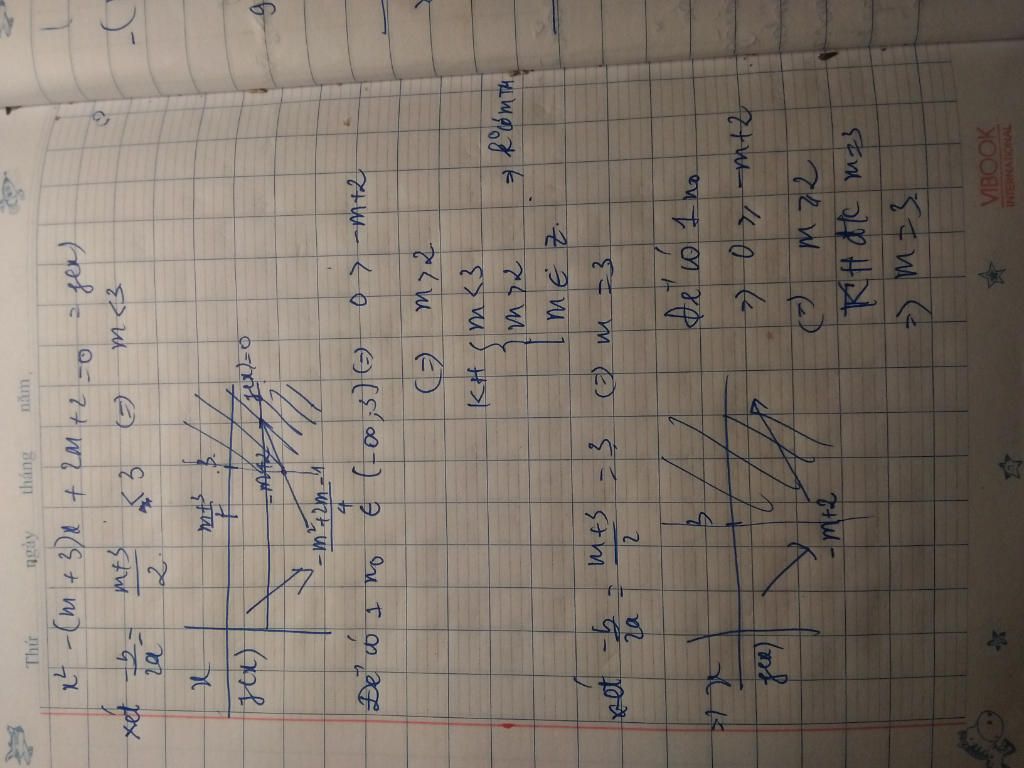 Thứ ngày tháng năm
x² - (m + 3)x + 2m + 2 = 0 = g(x)
xét -b/2a = m+3/2 < 3 (=) m < 3
x m+3/ 3
g(x) -m+2 g(x)=0
-m²+2m-1/4
Để có 1 n₀ ∈ (-∞; 3) (=) 0 > -m+2
(=) m > 2
KH { m < 3
m > 2
m ∈ Z
xét -b/2a = m+3/2 = 3 (=) m = 3
=) x 3
g(x)
-m+2
Để có 1 n₀
=) 0 ≥ -m+2
(=) m ≥ 2
KH đk m=3
=) m = 3
VIBOOK
INTERNATIONAL